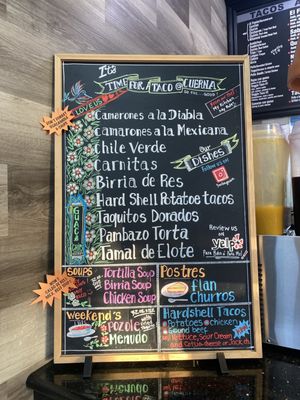 It's
TIME FOR A TACO @ CUERNA
SO FUL...GOOD!
LOVE US
Camarones a la Diabla
Camarones a la Mexicana
Chile Verde
Carnitas
Birria de Res
Hard Shell Potatoe tacos
Taquitos Dorados
Pambazo Torta
Tamal de Elote
Our
Dishes
FOLLOW US ON
Instagram
Review us
on
yelp
GUAC
SOUPS
Tortilla Soup
Birria Soup
Chicken Soup
Postres
Flan
Churros
Weekend's
Pozole
Menudo
Hardshell Tacos
Potatoes
chicken
Ground beef
w/ Lettuce, Sour Cream and
and Cotija-cheese or Jack
TACOS